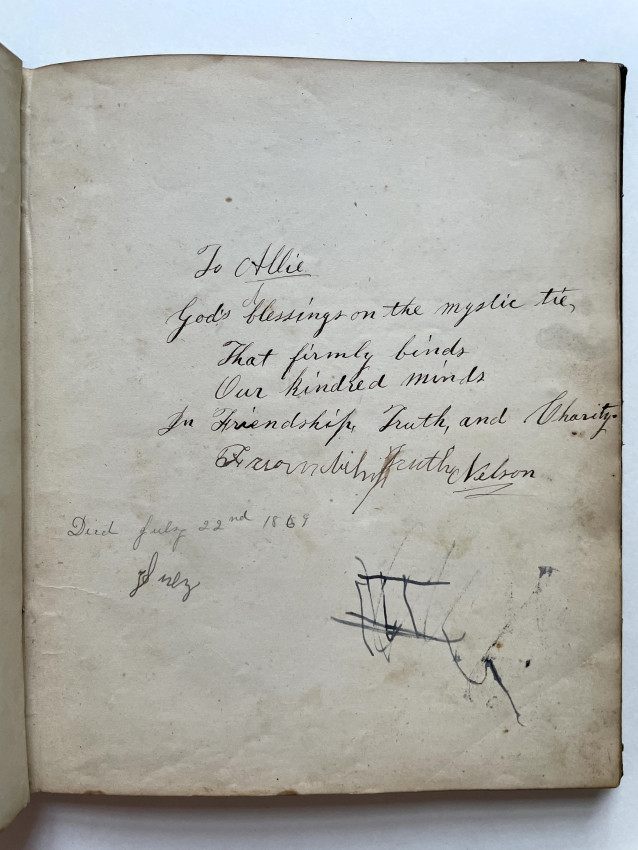 To Allie
God's blessings on the mystic tie,
That firmly binds
Our kindred minds
In Friendship, Truth, and Charity.
Truth, Nelson
Died July 22nd 1869
July